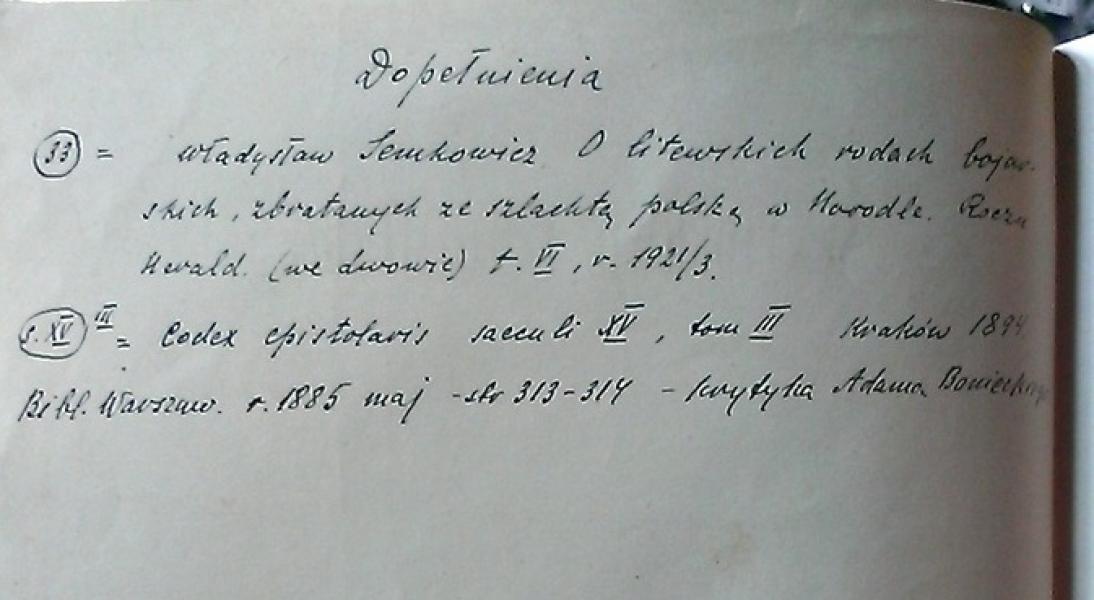 Dopełnienia
33 = Władysław Semkowicz O litewskich rodach bojar-
skich, zbratanych ze szlachtą polską w Horodle. Roczn
Herald. (we Lwowie) t. VI, r. 1921/3.
s. XV III = Codex epistolaris saeculi XV, tom III Kraków 1894
Bibl. Warszaw. r. 1885 maj - str 313-314 - krytyka Adama Bonieckiego